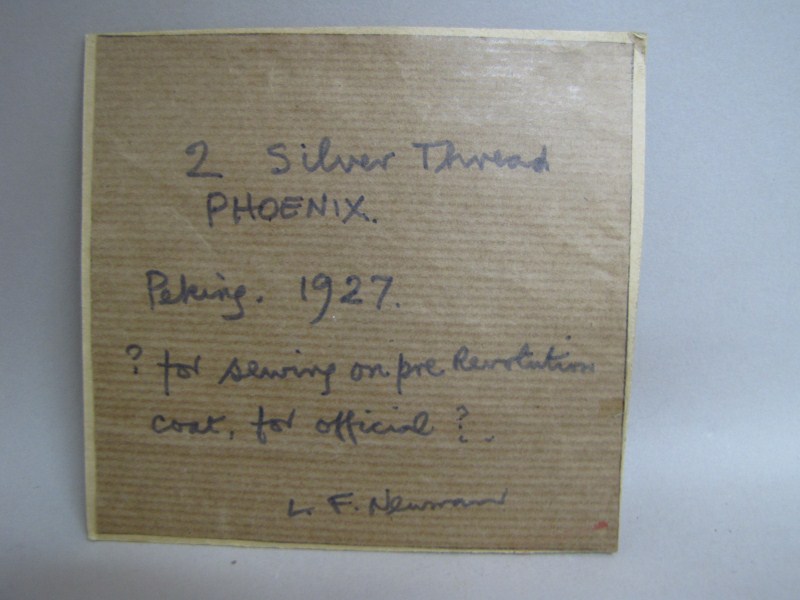 2 Silver Thread
PHOENIX.
Peking. 1927.
? for sewing on pre Revolution
coat, for official ?.
L. F. Newman